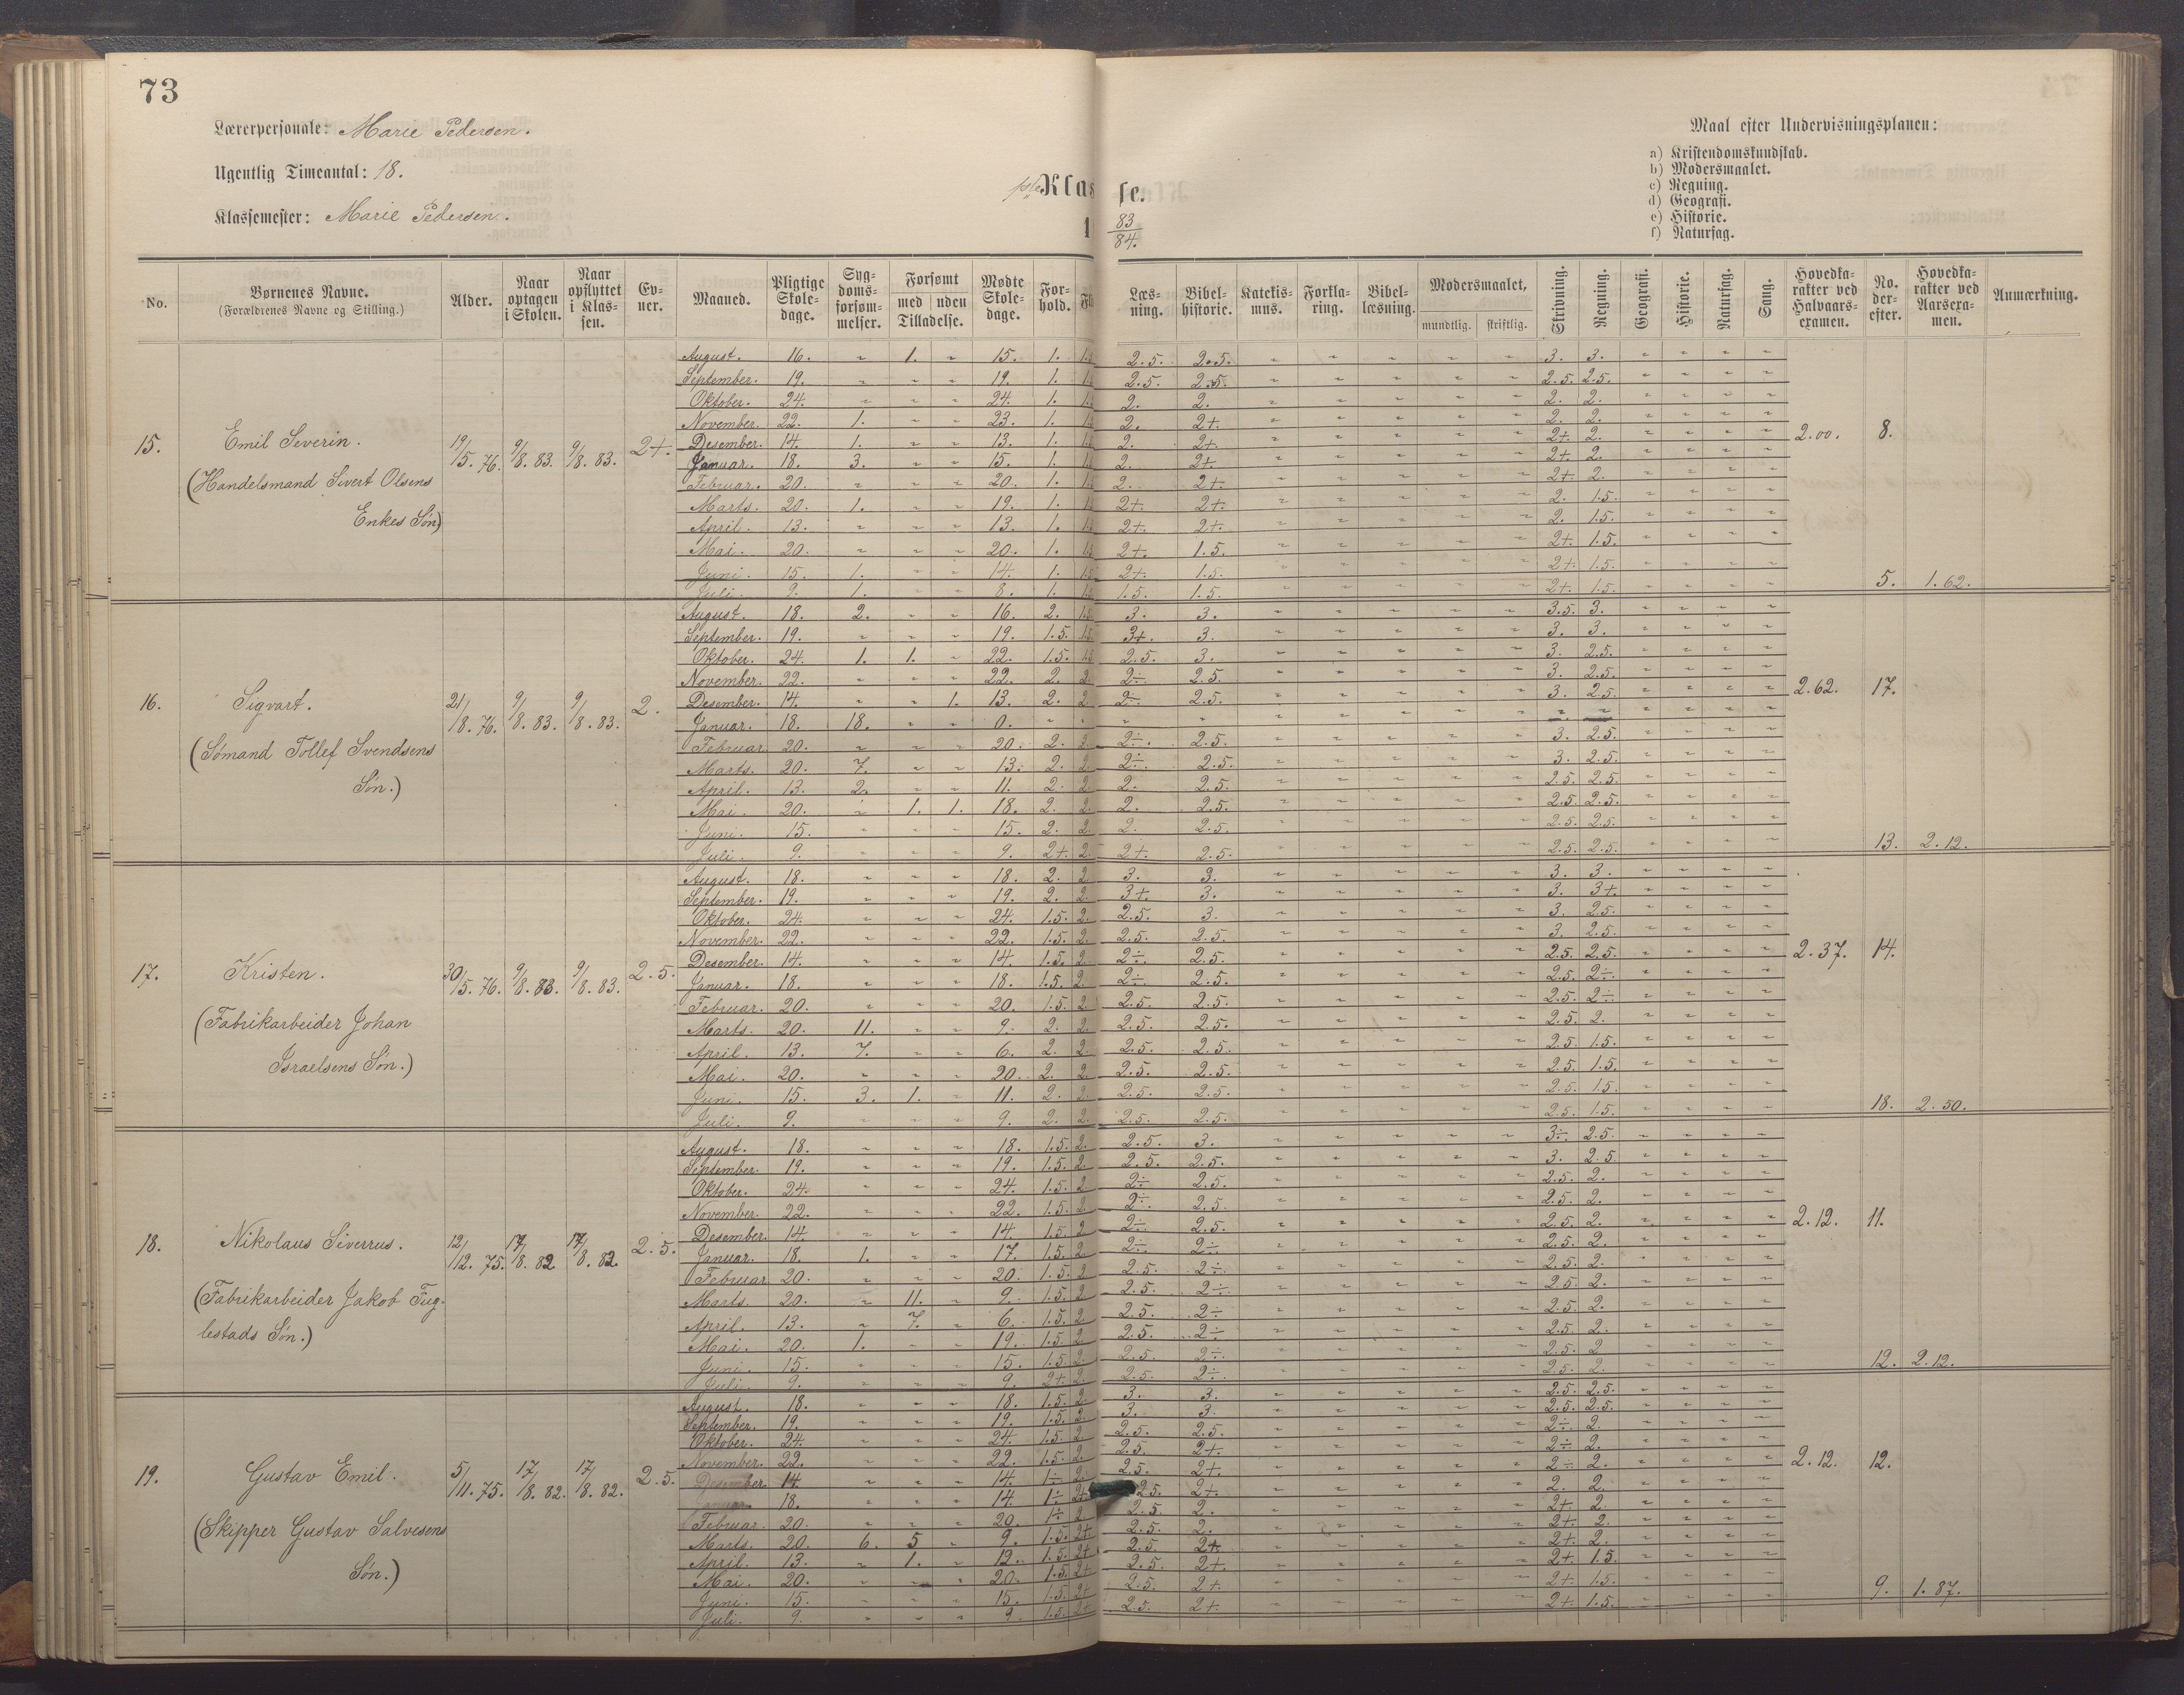 73
Lærerpersonale: Marie Pedersen.
Ugentlig Timeantal: 18.
Klassemester: Marie Pedersen.
1ste Klasse.
83/84.
Maal efter Undervisningsplanen:
a) Kristendomskundskab.
b) Modersmaalet.
c) Regning.
d) Geografi.
e) Historie.
f) Naturfag.
No. | Børnenes Navne. (Forældrenes Navne og Stilling.) | Alder. | Naar optagen i Skolen. | Naar opflyttet i Klassen. | Evner. | Maaned. | Pligtige Skoledage. | Sygdomsforsømmelser. | Forsømt med uden Tilladelse. | Mødte Skoledage. | Forhold. | Fl | Læsning. | Bibelhistorie. | Katekismus. | Forklaring. | Bibellæsning. | Modersmaalet, mundtlig. skriftlig. | Skrivning. | Regning. | Geografi. | Historie. | Naturfag. | Sang. | Hovedkarakter ved Halvaarsexamen. | Nederefter. | Hovedkarakter ved Aarsexamen. | Anmærkning.
15. Emil Severin. 19/5. 76. 9/8. 83. 9/8. 83. 2+. 2.00. 8.
(Handelsmand Sivert Olsens
Enkes Søn)
August. 16. „ 1. „ 15. 1. 2.5. 2.5. 3. 3.
September. 19. „ „ „ 19. 1. 2.5. 2.5. 2.5. 2.5.
Oktober. 24. „ „ „ 24. 1. 2. 2. 2. 2.
November. 22. 1. „ „ 23. 1. 2. 2+. 2. 2.
Desember. 14. 1. „ „ 13. 1. 2. 2+. 2+. 2.
Januar. 18. 3. „ „ 15. 1. 2. 2+. 2+. 2.
Februar. 20. „ „ „ 20. 1. 2. 2+. 2+. 2.
Marts. 20. 1. „ „ 19. 1. 2+. 2+. 2. 1.5.
April. 13. „ „ „ 13. 1. 2+. 2+. 2. 1.5.
Mai. 20. „ „ „ 20. 1. 2+. 1.5. 2+. 1.5.
Juni. 15. 1. „ „ 14. 1. 2+. 1.5. 2+. 1.5.
Juli. 9. 1. „ „ 8. 1. 1.5. 1.5. 2+. 1.5. 5. 1.62.
16. Sigvart. 21/8. 76. 9/8. 83. 9/8. 83. 2. 2.62. 17.
(Sømand Tollef Svendsens
Søn.)
August. 18. 2. „ „ 16. 2. 3. 3. 3.5. 3.
September. 19. „ „ „ 19. 1.5. 3+. 3. 3. 3.
Oktober. 24. 1. 1. „ 22. 1.5. 2.5. 3. 3. 2.5.
November. 22. „ „ „ 22. 2. 2. 2÷ 2.5. 3. 2.5.
Desember. 14. „ „ 1. 13. 2. 2. 2÷ 2.5. 3. 2.5.
Januar. 18. 18. „ „ 0. „ „ „ „ „ „
Februar. 20. „ „ „ 20. 2. 2. 2÷. 2.5. 3. 2.5.
Marts. 20. 7. „ „ 13. 2. 2. 2÷. 2.5. 3. 2.5.
April. 13. 2. „ „ 11. 2. 2. 2. 2.5. 2.5. 2.5.
Mai. 20. „ 1. 1. 18. 2. 2. 2. 2.5. 2.5. 2.5.
Juni. 15. „ „ „ 15. 2. 2. 2. 2.5. 2.5. 2.5.
Juli. 9. „ „ „ 9. 2+. 2. 2+. 2.5. 2.5. 2.5. 13. 2.12.
17. Kristen. 30/5. 76. 9/8. 83. 9/8. 83. 2.5. 2.37. 14.
(Fabrikarbeider Johan
Israelsens Søn.)
August. 18. „ „ „ 18. 2. 2. 3. 3. 3. 3.
September. 19. „ „ „ 19. 2. 2. 3+. 3. 3. 3+.
Oktober. 24. „ „ „ 24. 1.5. 2. 2.5. 3. 3. 2.5.
November. 22. „ „ „ 22. 1.5. 2. 2.5. 2.5. 3. 2.5.
Desember. 14. „ „ „ 14. 1.5. 2. 2÷. 2.5. 2.5. 2.5.
Januar. 18. „ „ „ 18. 1.5. 2. 2÷. 2.5. 2.5. 2÷.
Februar. 20. „ „ „ 20. 1.5. 2. 2.5. 2.5. 2.5. 2÷.
Marts. 20. 11. „ „ 9. 2. 2. 2.5. 2.5. 2.5. 2.
April. 13. 7. „ „ 6. 2. 2. 2.5. 2.5. 2.5. 1.5.
Mai. 20. „ „ „ 20. 2. 2. 2.5. 2.5. 2.5. 1.5.
Juni. 15. 3. 1. „ 11. 2. 2. 2.5. 2.5. 2.5. 1.5.
Juli. 9. „ „ „ 9. 2. 2. 2.5. 2.5. 2.5. 1.5. 18. 2.50.
18. Nikolaus Siverrus. 12/12. 75. 17/8. 82 17/8. 82. 2.5. 2.12. 11.
(Fabrikarbeider Jakob Fug-
lestads Søn.)
August. 18. „ „ „ 18. 1.5. 2. 2.5. 3. 3÷. 2.5.
September. 19. „ „ „ 19. 1.5. 2. 2.5. 2.5. 3. 2.5.
Oktober. 24. „ „ „ 24. 1.5. 2 2÷ 2.5. 2.5. 2.
November. 22. „ „ „ 22. 1.5. 2 2÷. 2.5. 2.5. 2.
Desember. 14. „ „ „ 14. 1.5. 2 2÷. 2.5. 2.5. 2.
Januar. 18. 1. „ „ 17. 1.5. 2 2÷. 2÷. 2.5. 2.
Februar 20. „ „ „ 20. 1.5. 2 2.5. 2÷. 2.5. 2.
Marts. 20. „ 11. „ 9. 1.5. 2 2.5. 2÷. 2.5. 2.
April. 13. „ 7. „ 6. 1.5. 2. 2.5. 2÷ 2.5. 2.
Mai. 20. 1. „ „ 19. 1.5. 2 2.5. 2÷ 2.5. 2.
Juni. 15. „ „ „ 15. 1.5. 2. 2.5. 2÷. 2.5. 2
Juli. 9. „ „ „ 9. 2+. 2. 2.5. 2÷. 2.5. 2. 12. 2.12.
19. Gustav Emil. 5/11. 75. 17/8. 82. 17/8. 82. 2.5. 2.12. 12.
(Skipper Gustav Salvesens
Søn.)
August. 18. „ „ „ 18. 1.5. 2. 3. 3. 2.5. 2.5.
September. 19. „ „ „ 19. 1.5. 2. 3. 3. 2.5. 2.5.
Oktober. 24. „ „ „ 24. 1.5. 2 2.5. 2.5. 2÷ 2.
November. 22. „ „ „ 22. 1.5. 2. 2.5. 2+. 2÷ 2.
Desember. 14. „ „ „ 14. 1÷ 2. 2.5. 2+. 2÷ 2.
Januar. 18. „ „ „ 14. 1÷ 2+ 2.5. 2+. 2. 2.
Februar. 20. „ „ „ 20. 1÷ 2 2.5. 2. 2+. 2.
Marts. 20. 6. 5 „ 9. 1.5. 2+. 2.5. 2. 2+. 2.
April. 13. „ 1. „ 12. 1.5. 2+ 2.5. 2+ 2+. 2.
Mai. 20. „ „ „ 20. 1.5. 2+ 2.5. 2+. 2+. 1.5.
Juni. 15. „ „ „ 15. 1.5. 2+ 2.5. 2+. 2+. 1.5.
Juli. 9. „ „ „ 9. 1.5. 2+ 2.5. 2+. 2+. 1.5. 9. 1.87.